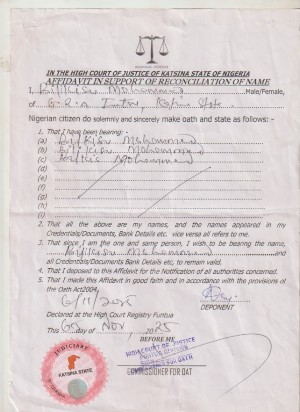 IN THE HIGH COURT OF JUSTICE OF KATSINA STATE OF NIGERIA
AFFIDAVIT IN SUPPORT OF RECONCILIATION OF NAME
I, Mohammed Male/Female,
of G.R.A Funtua, Katsina State
Nigerian citizen do solemnly and sincerely make oath and state as follows:-
1. That I have been bearing:-
(a) Mohammad
(b) Mohammed
(c) Mohammed
(d)
(e)
(f)
(g)
(h)
(i)
2. That all the above are my names, and the names appeared in my
Credentials/Documents, Bank Details etc. vice versa all refers to me.
3. That since I am the one and same person, I wish to be bearing the name,
and all Credentials/Documents Bank Details etc, to remain valid.
4. That I deposed to this Affidavit for the Notification of all authorities concerned.
5. That I made this Affidavit in good faith and in accordance with the provisions of
the Oath Act2004.
6/11/2025
DEPONENT
Declared at the High Court Registry Funtua
This day of Nov, 2025
BEFORE ME
HIGH COURT OF JUSTICE
COMMISSIONER FOR OAT
JUDICIARY
KATSINA STATE